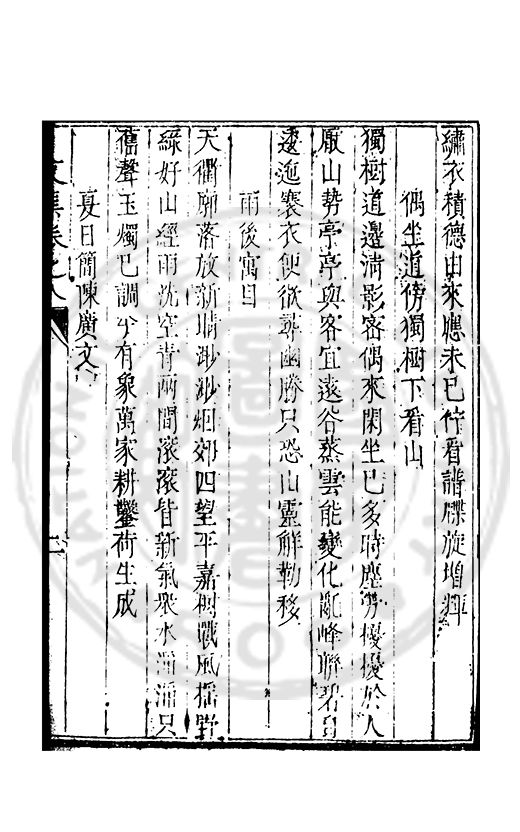 繡衣積德由來應未已佇看譜牒旋增輝
偶坐道傍獨樹下看山
獨樹道邊淸影密偶來閑坐已多時塵勞擾擾於人
厭山勢亭亭與客宜遠谷蒸雲能變化亂峰
逶迤褰衣便欲尋幽勝只恐山靈解勒移
雨後寓目
天衢廓落放新晴渺渺烟郊四望平嘉樹戰風搖野
綠好山經雨洗空青兩間滾滾皆新氣衆水涌涌只
舊聲玉燭已調兮有象萬家耕鑿荷生成
夏日簡陳廣文
集卷之八